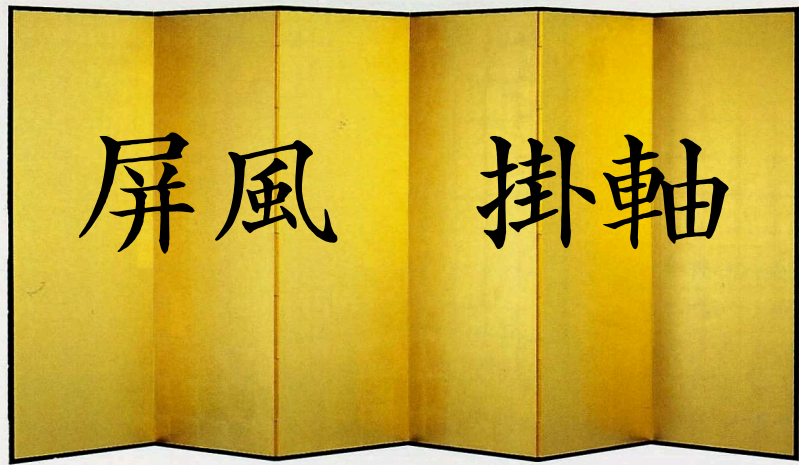 屏風 掛軸